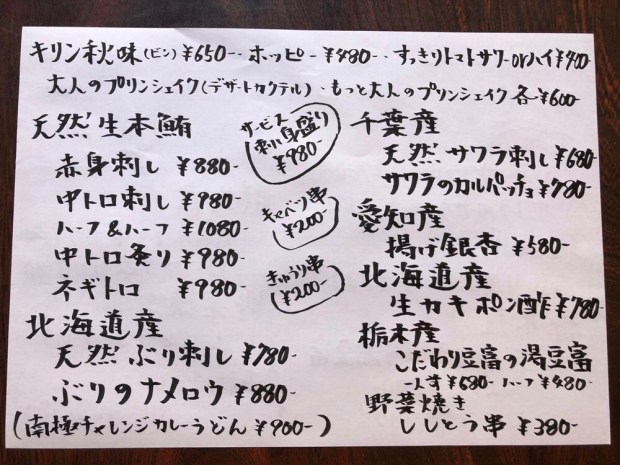 キリン秋味(ビン)¥650- ・ホッピー¥480- ・すっきりトマトサワーorハイ¥400
大人のプリンシェイク(デザートカクテル)・もっと大人のプリンシェイク各¥600-
天然生本鮪
赤身刺し ¥880-
中トロ刺し ¥980-
ハーフ&ハーフ ¥1080-
中トロ炙り ¥980-
ネギトロ ¥980-
北海道産
天然ぶり刺し¥780-
ぶりのナメロウ¥880-
(南極チャレンジカレーうどん¥900-)
サービス
刺し身盛り
¥980-
キャベツ串
¥200-
きゅうり串
¥200-
千葉産
天然サワラ刺し¥680-
サワラのカルパッチョ¥780-
愛知産
揚げ銀杏¥580-
北海道産
生カキポン酢¥780-
栃木産
こだわり豆富の湯豆富
一人す¥680- ハーフ¥480-
野菜焼き
ししとう串¥380-